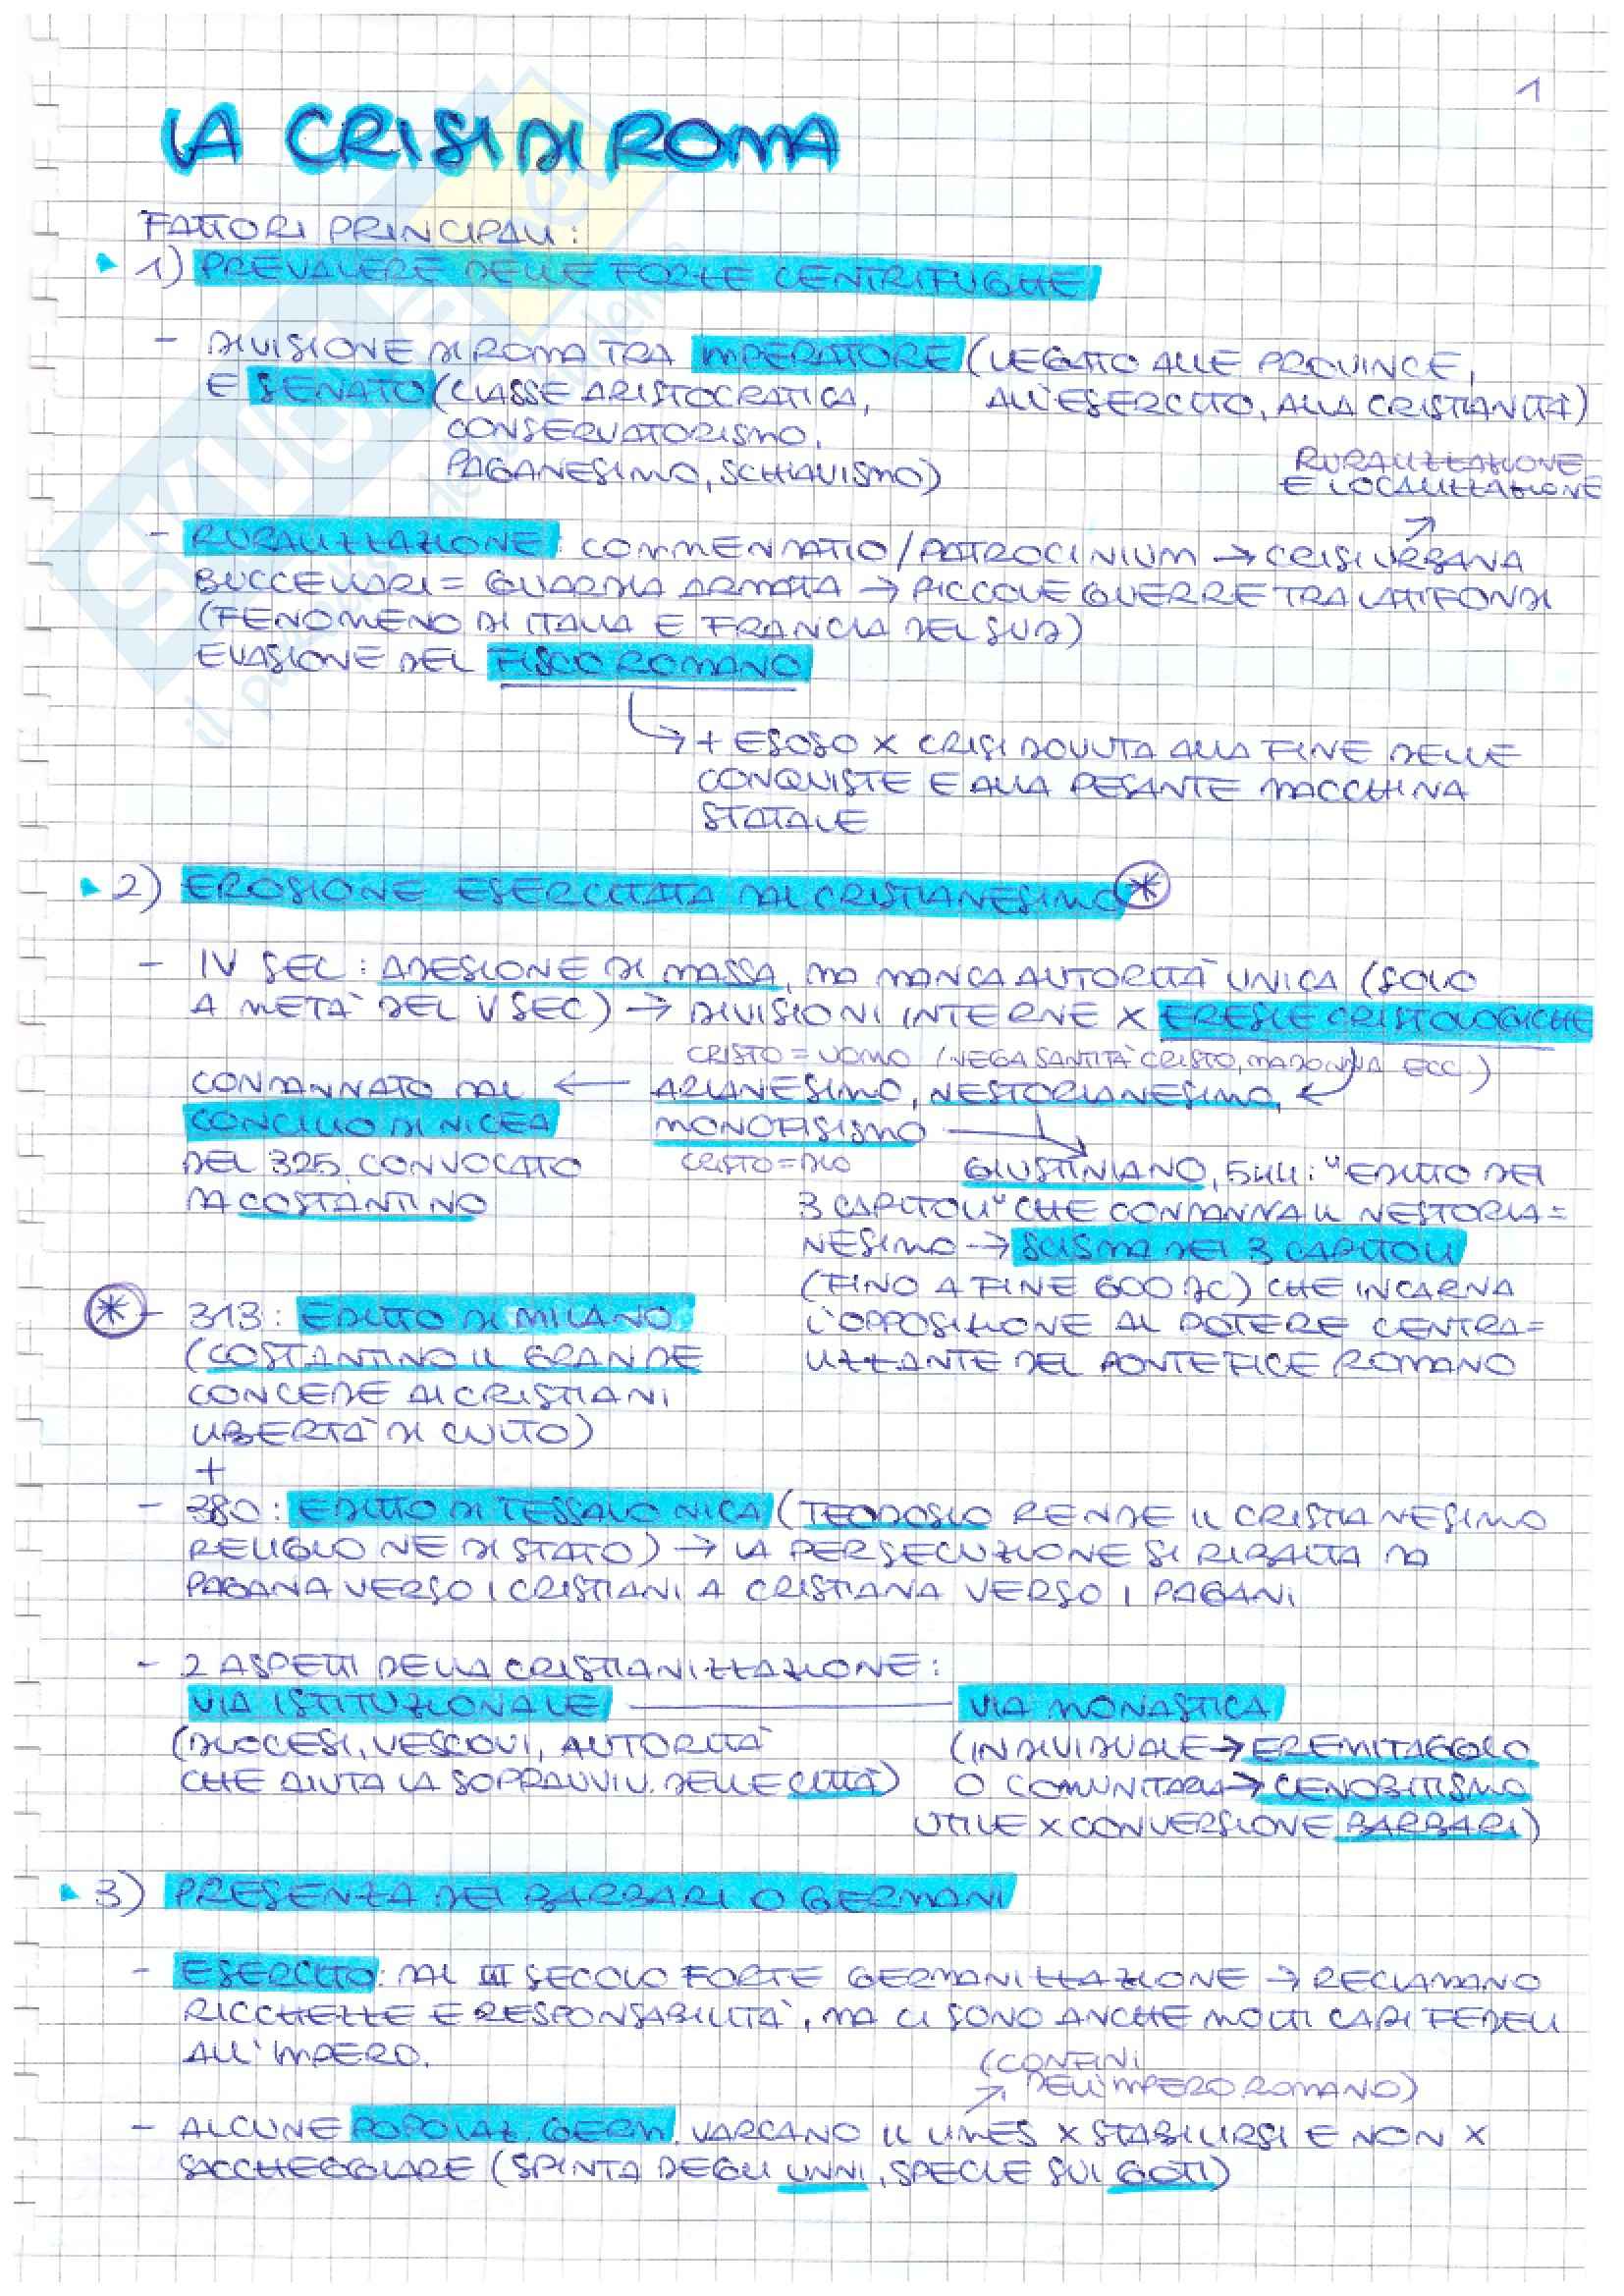 1
LA CRISI DI ROMA
FATTORI PRINCIPALI:
1) PREVALERE DELLE FORZE CENTRIFUGHE
- DIVISIONE DI ROMA TRA IMPERATORE (LEGATO ALLE PROVINCE,
E SENATO (CLASSE ARISTOCRATICA, ALL'ESERCITO, ALLA CRISTIANITÀ)
CONSERVATORISMO,
PAGANESIMO, SCHIAVISMO)
RURALIZZAZIONE
E LOCALIZZAZIONE
↗
- RURALIZZAZIONE: COMMENDATIO/PATROCINIUM → CRISI URBANA
BUCCELLARI = GUARDIA ARMATA → PICCOLE GUERRE TRA LATIFONDI
(FENOMENO DI ITALIA E FRANCIA DEL SUD)
EVASIONE DEL FISCO ROMANO
↳ + ESOSO X CRISI DOVUTA ALLA FINE DELLE
CONQUISTE E ALLA PESANTE MACCHINA
STATALE
2) EROSIONE ESERCITATA DAL CRISTIANESIMO *
- IV SEC: ADESIONE DI MASSA, MA MANCA AUTORITÀ UNICA (SOLO
A METÀ DEL V SEC) → DIVISIONI INTERNE X ERESIE CRISTOLOGICHE
CRISTO = UOMO (NEGA SANTITÀ CRISTO, MADONNA ECC.)
CONDANNATO DAL ← ARIANESIMO, NESTORIANESIMO, ↙
CONCILIO DI NICEA MONOFISISMO
DEL 325, CONVOCATO CRISTO = DIO
DA COSTANTINO
GIUSTINIANO, 544: "EDITTO DEI
3 CAPITOLI" CHE CONDANNA IL NESTORIA=
NESIMO → SCISMA DEI 3 CAPITOLI
(FINO A FINE 600 DC) CHE INCARNA
L'OPPOSIZIONE AL POTERE CENTRA=
LIZZANTE DEL PONTEFICE ROMANO
* - 313: EDITTO DI MILANO
(COSTANTINO IL GRANDE
CONCEDE AI CRISTIANI
LIBERTÀ DI CULTO)
+
- 380: EDITTO DI TESSALONICA (TEODOSIO RENDE IL CRISTIANESIMO
RELIGIONE DI STATO) → LA PERSECUZIONE SI RIBALTA DA
PAGANA VERSO I CRISTIANI A CRISTIANA VERSO I PAGANI
- 2 ASPETTI DELLA CRISTIANIZZAZIONE:
VIA ISTITUZIONALE VIA MONASTICA
(DIOCESI, VESCOVI, AUTORITÀ (INDIVIDUALE → EREMITAGGIO
CHE AIUTA LA SOPRAVVIV. DELLE CITTÀ) O COMUNITARIA → CENOBITISMO
UTILE X CONVERSIONE BARBARI)
3) PRESENZA DEI BARBARI O GERMANI
- ESERCITO: DAL III SECOLO FORTE GERMANIZZAZIONE → RECLAMANO
RICCHEZZE E RESPONSABILITÀ, MA CI SONO ANCHE MOLTI CAPI FEDELI
ALL'IMPERO.
(CONFINI
↗ DELL'IMPERO ROMANO)
- ALCUNE POPOLAZ. GERM. VARCANO IL LIMES X STABILIRSI E NON X
SACCHEGGIARE (SPINTA DEGLI UNNI, SPECIE SUI GOTI)